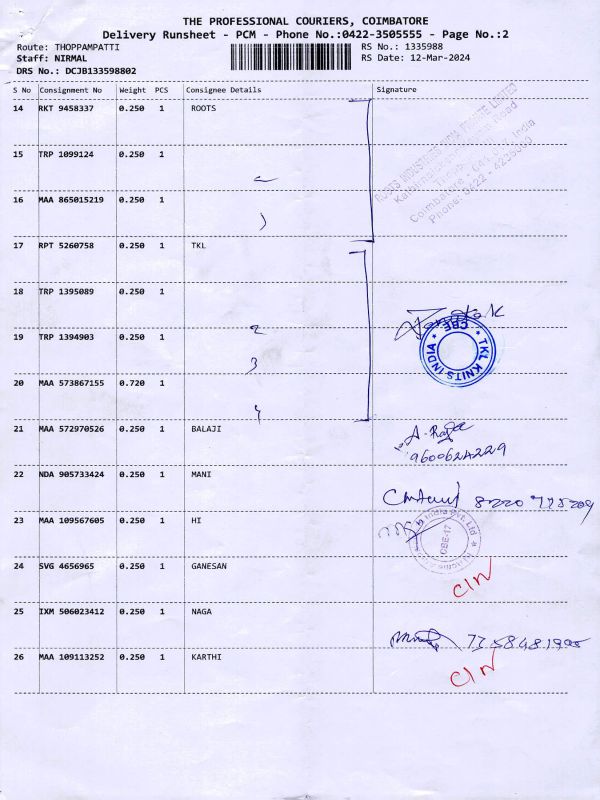 THE PROFESSIONAL COURIERS, COIMBATORE
Delivery Runsheet - PCM - Phone No.:0422-3505555 - Page No.:2
Route: THOPPAMPATTI RS No.: 1335988
Staff: NIRMAL RS Date: 12-Mar-2024
DRS No.: DCJB133598802
S No Consignment No Weight PCS Consignee Details Signature
14 RKT 9458337 0.250 1 ROOTS
ROOTS INDUSTRIES INDIA PRIVATE LIMITED
Road
Coimbatore - 641 India
Phone: 0422 -
15 TRP 1099124 0.250 1
16 MAA 865015219 0.250 1
17 RPT 5260758 0.250 1 TKL
18 TRP 1395089 0.250 1
2
19 TRP 1394903 0.250 1
TKL KNITS INDIA * CBE *
3
20 MAA 573867155 0.720 1
4
21 MAA 572970526 0.250 1 BALAJI
A. Raja
22 NDA 905733424 0.250 1 MANI
23 MAA 109567605 0.250 1 HI
India Pvt. Ltd
CBE-17
24 SVG 4656965 0.250 1 GANESAN
CIN
25 IXM 506023412 0.250 1 NAGA
26 MAA 109113252 0.250 1 KARTHI
CIN